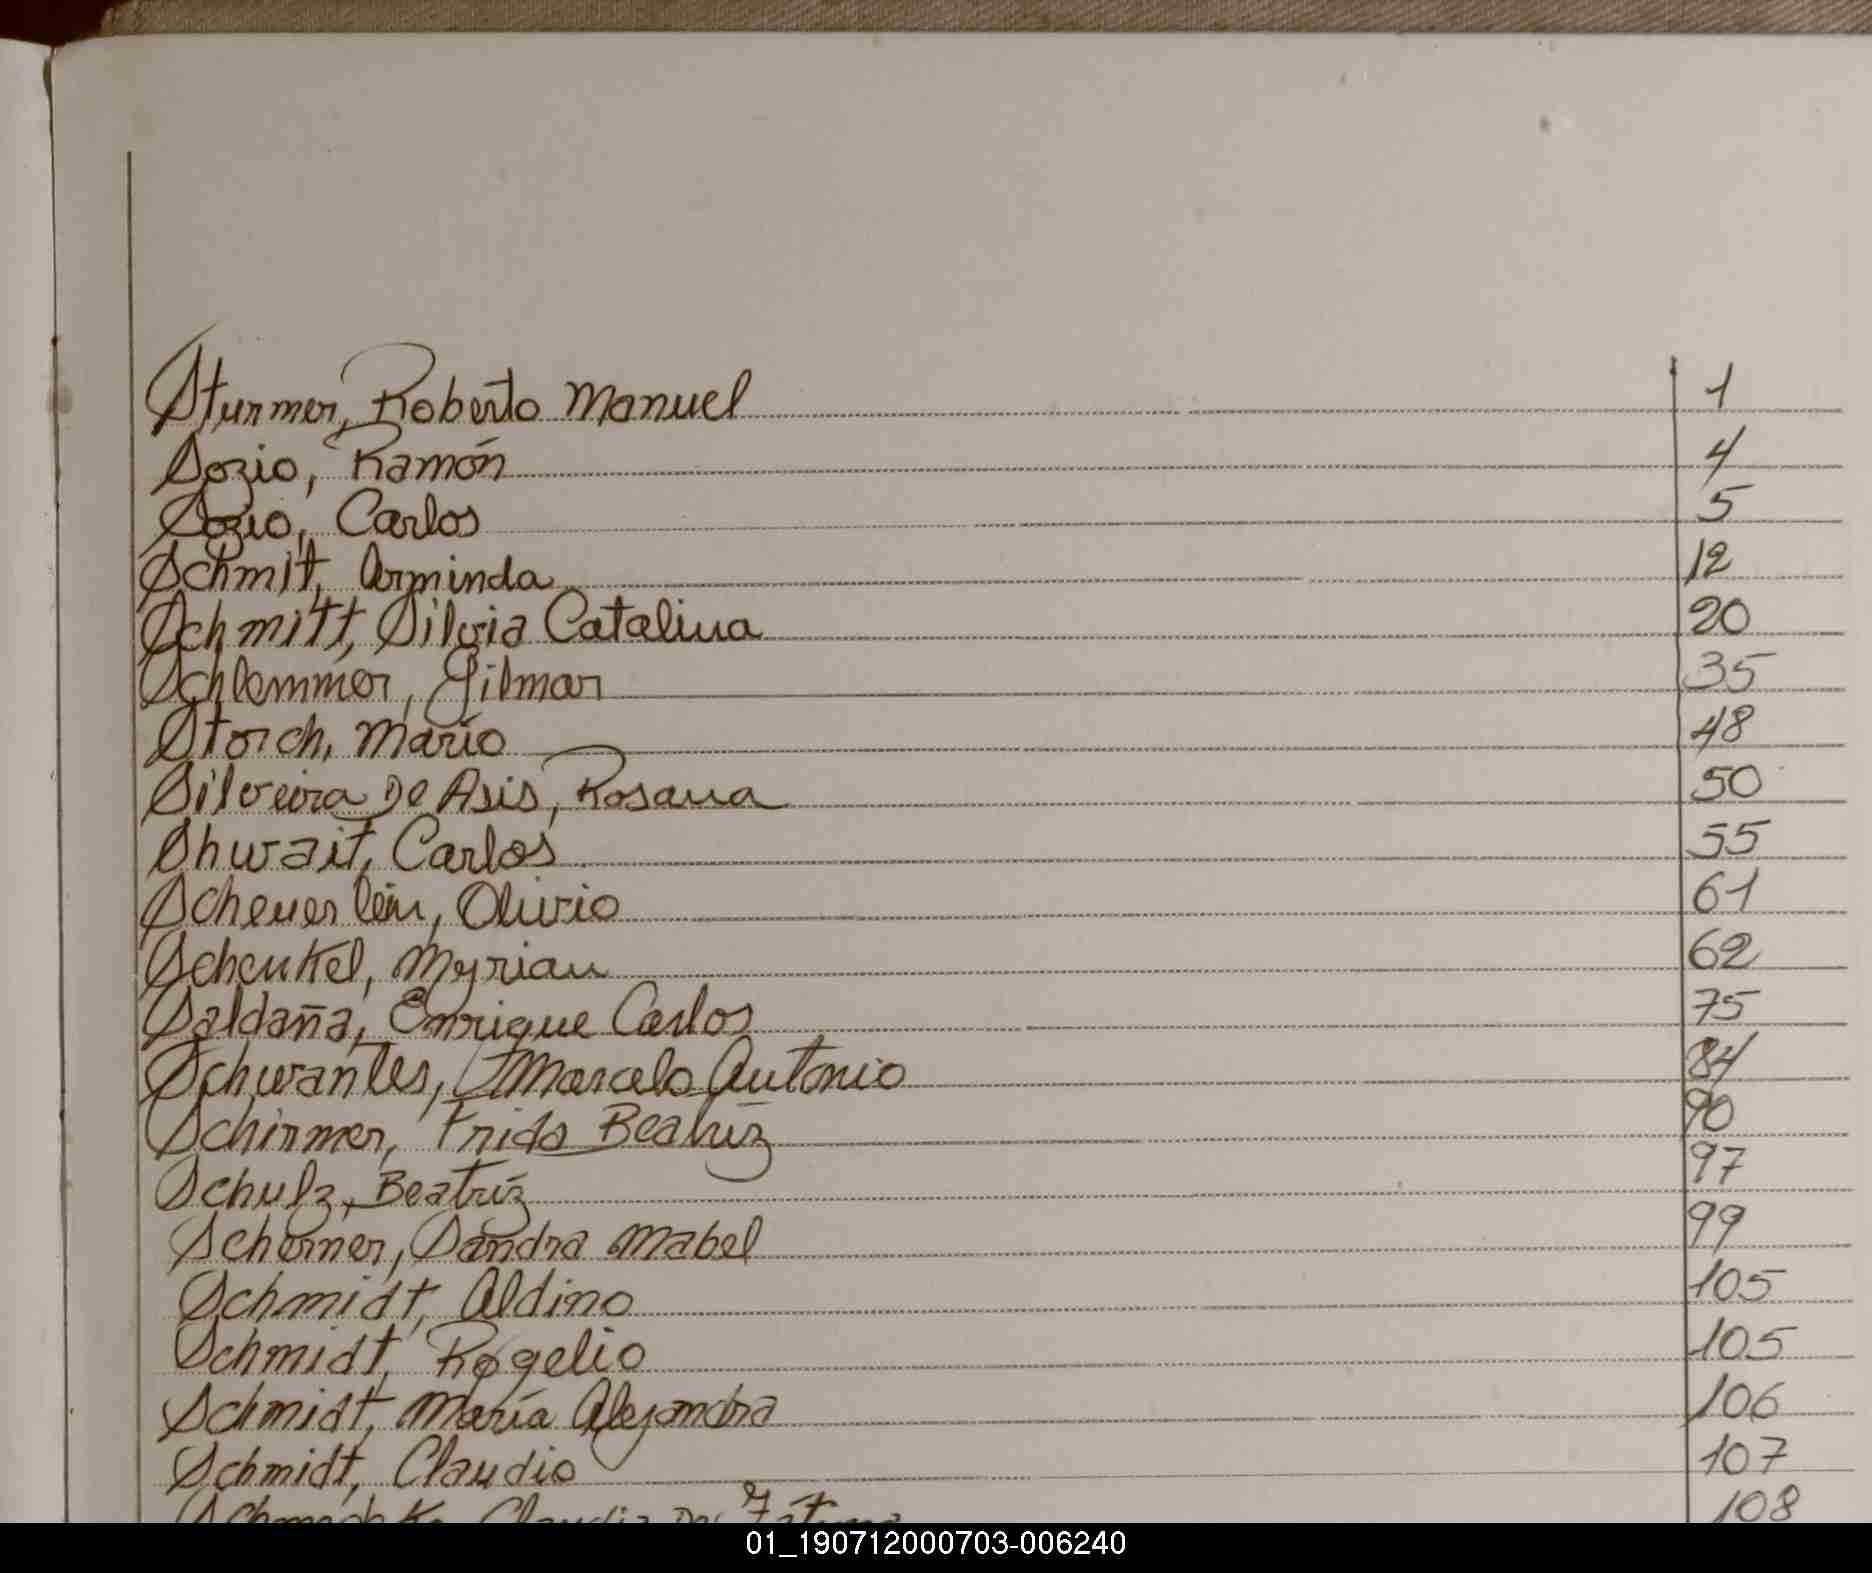 Sturmer, Roberto Manuel 1
Sozio, Ramón 4
Sozio, Carlos 5
Schmit, Arminda 12
Schmitt, Silvia Catalina 20
Schlemmer, Gilmar 35
Storch, Mario 48
Silveira De Asis, Rosana 50
Shwait, Carlos 55
Scheuerlein, Olivio 61
Schenkel, Myrian 62
Saldaña, Enrique Carlos 75
Schwantes, Marcelo Antonio 84
Schirmer, Frida Beatríz 90
Schulz, Beatríz 97
Scherner, Sandra Mabel 99
Schmidt, Aldino 105
Schmidt, Rogelio 105
Schmidt, María Alejandra 106
Schmidt, Claudio 107
108
01_190712000703-006240